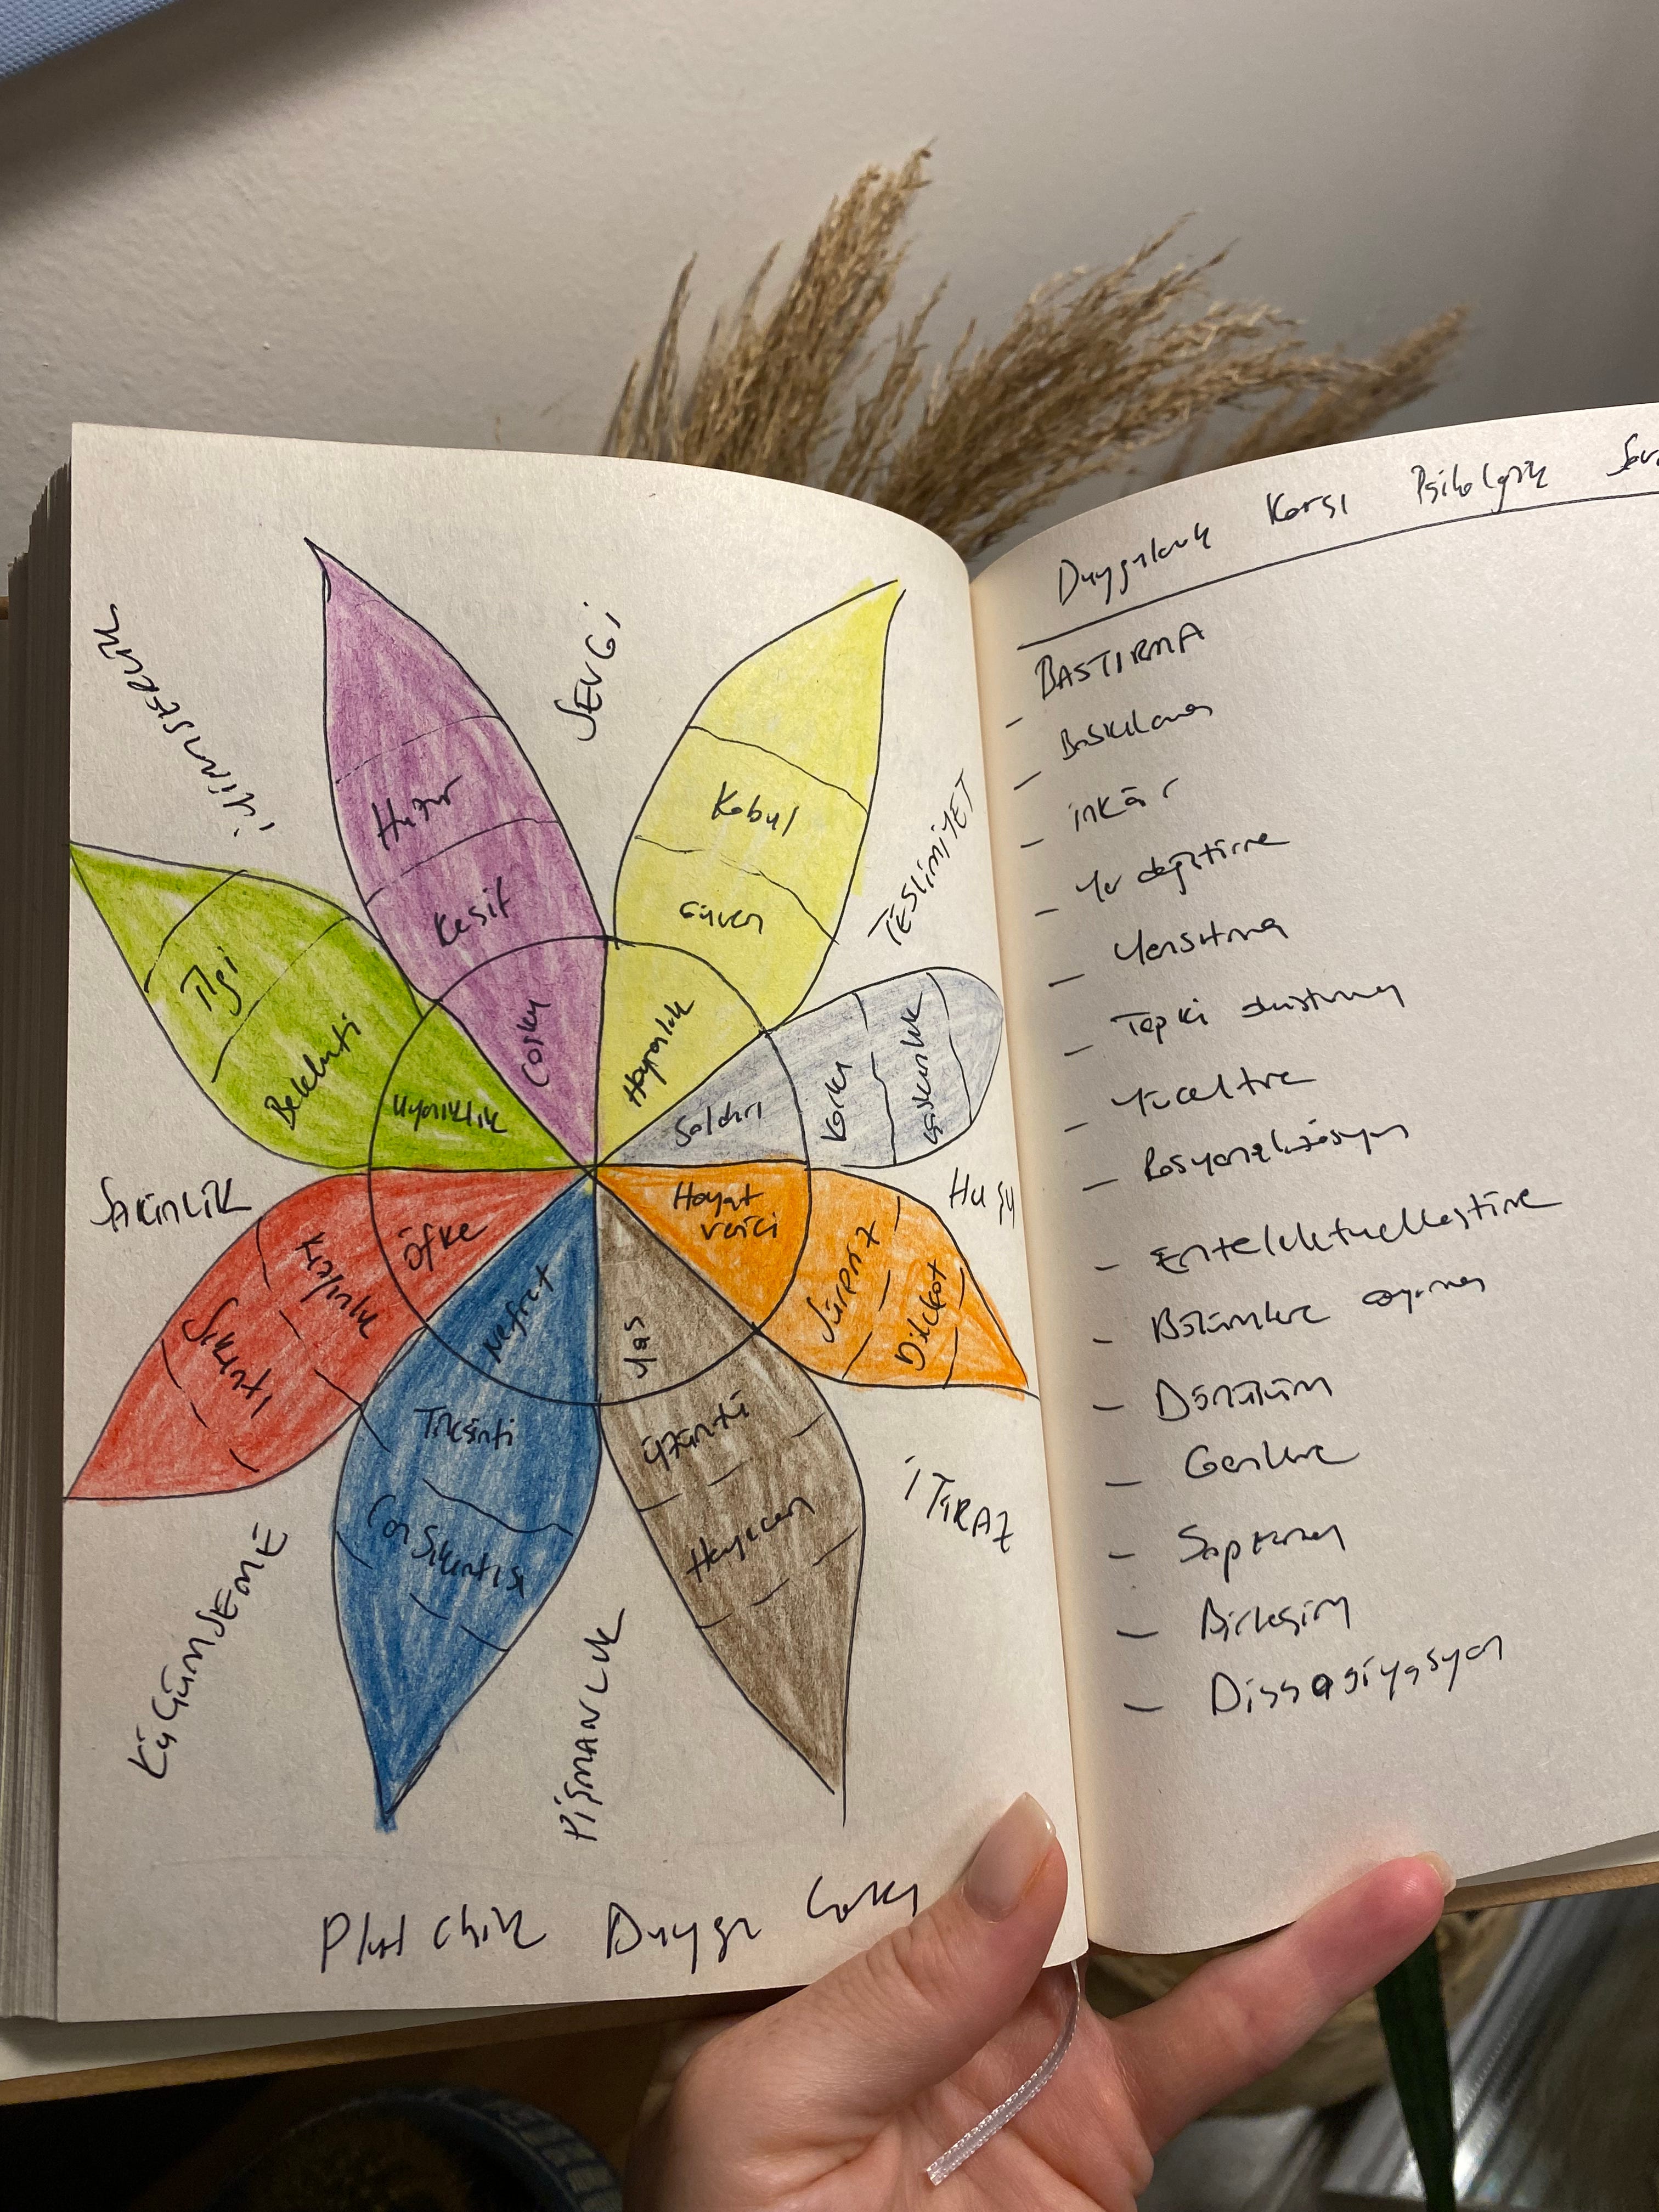 İYİMSERLİK
SEVGİ
TESLİMİYET
Huşu
İTİRAZ
PİŞMANLIK
KÜÇÜMSEME
SAKİNLİK
Huzur
Keşif
Coşku
Kabul
Güven
Hayranlık
Saldırı
Korku
Şaşkınlık
Hayat
verici
Sürpriz
Dikkat
Yas
Üzüntü
Heyecan
Nefret
Tiksinti
Can Sıkıntısı
Öfke
Kızgınlık
Sıkıntı
Uyanıklık
Beklenti
İlgi
Plutchik Duygu Çarkı
Duygulara Karşı Psikolojik Sav
- BASTIRMA
- Baskılama
- inkâr
- Yer değiştirme
- Yansıtma
- Tepki oluşturma
- Yüceltme
- Rasyonalizasyon
- Entelektüelleştirme
- Bölümlere ayırma
- Dönüşüm
- Gerileme
- Saplanma
- Birleşim
- Dissosiyasyon